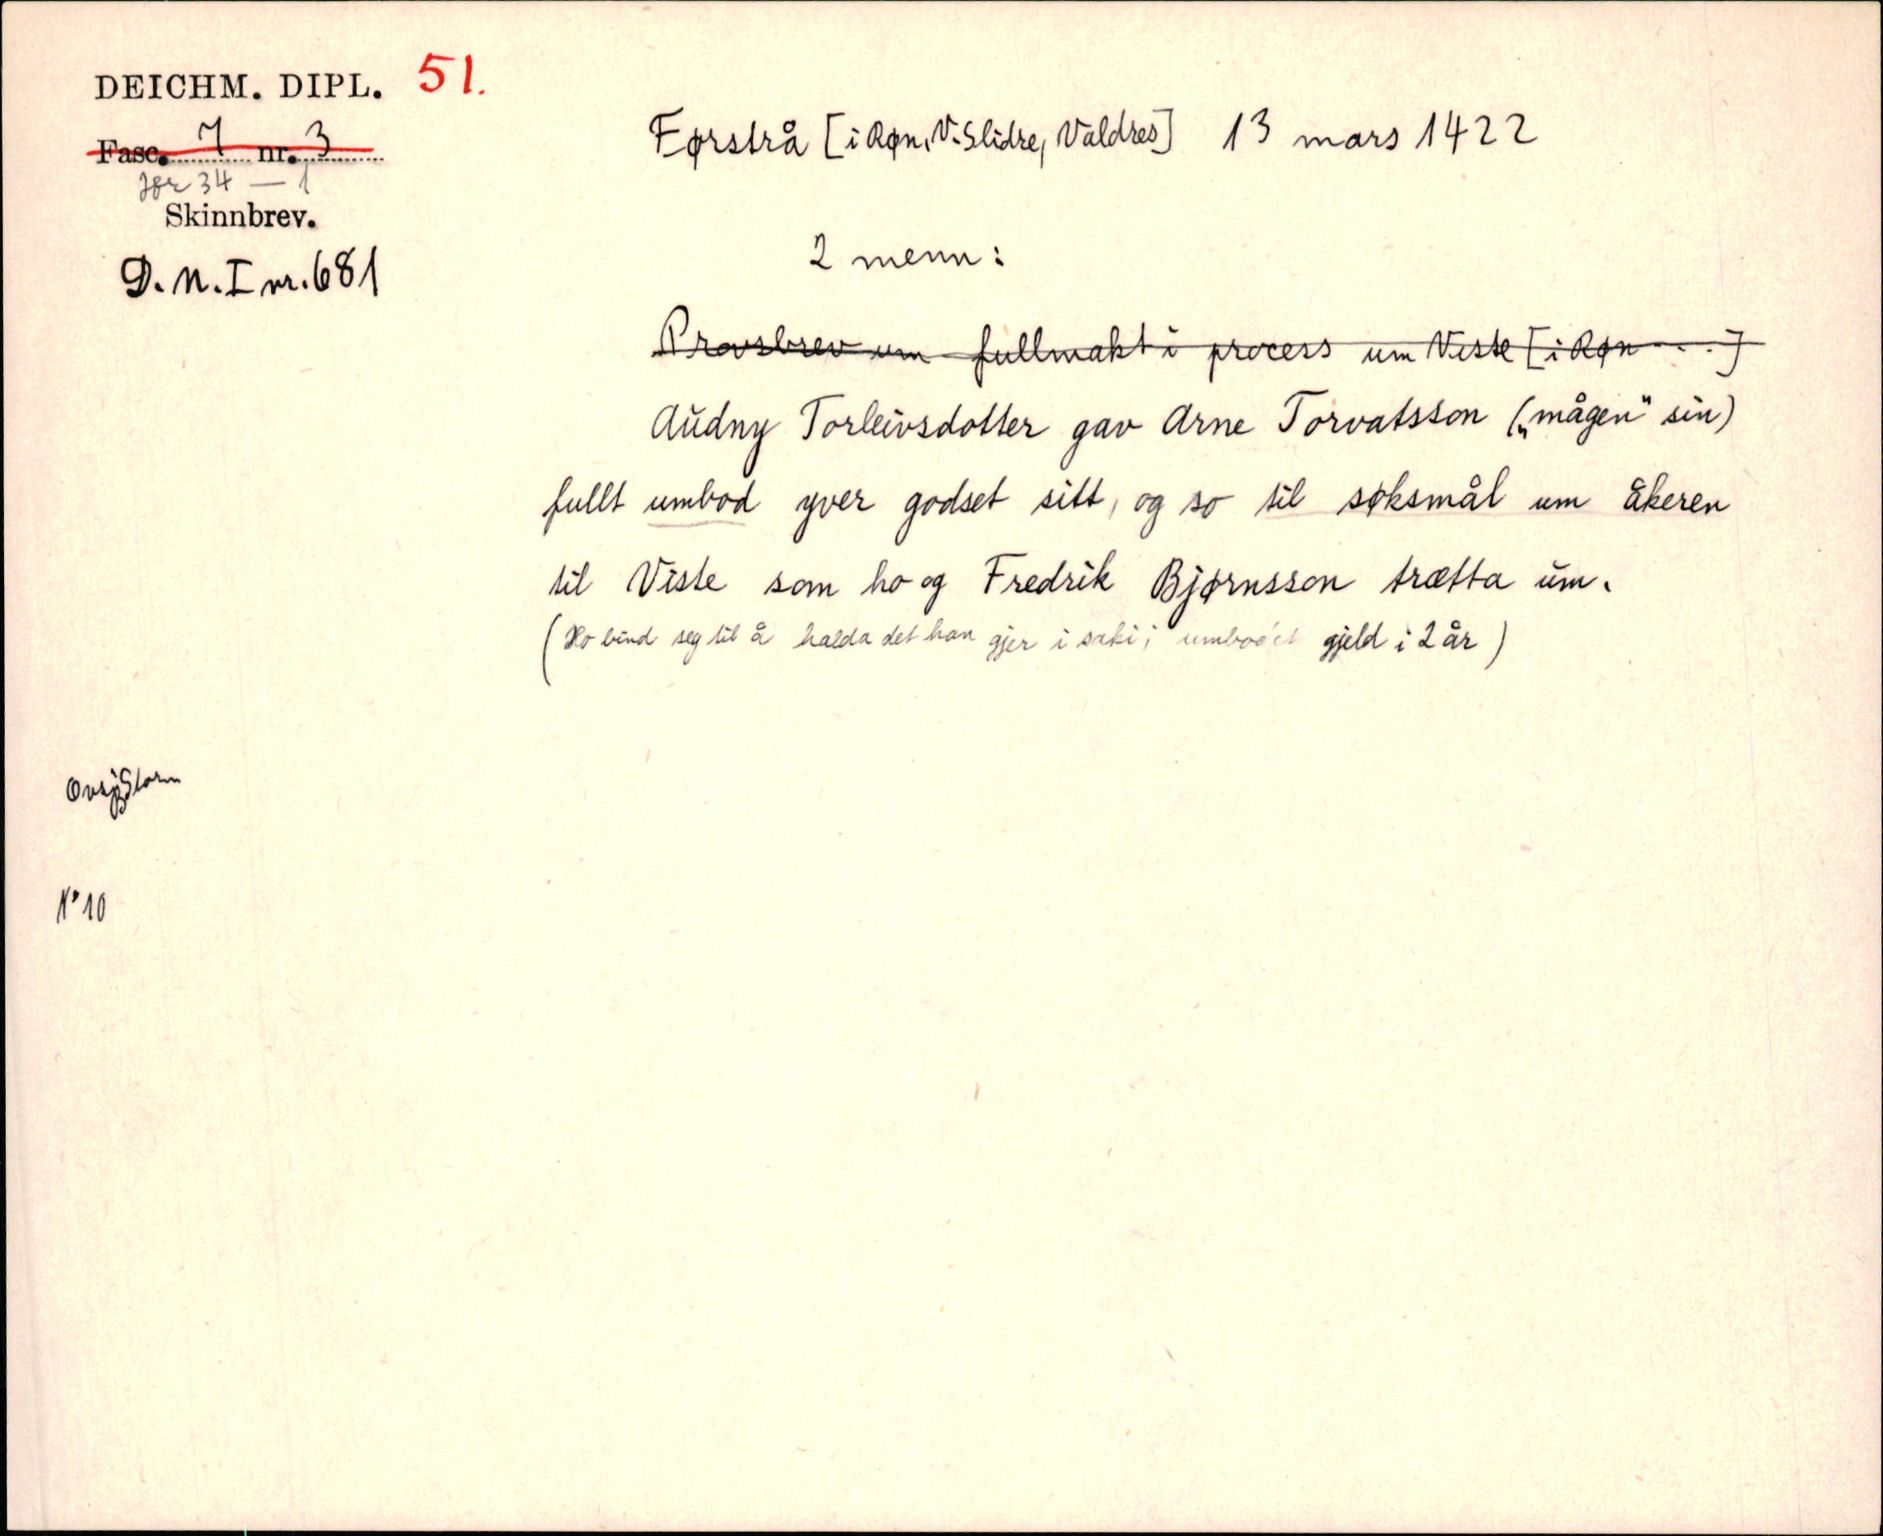 DEICHM. DIPL. 51.
Fasc. 7 nr. 3
Jfr 34 — 1
Skinnbrev.
D.N. I nr. 681
Førstrå [i Røn, V. Slidre, Valdres] 13 mars 1422
2 menn:
Provsbrev um fullmakt i process um Viste [i Røn ...]
Audny Torleivsdotter gav Arne Torvatsson („mågen" sin)
fullt umbod yver godset sitt, og so til søksmål um åkeren
til Viste som ho og Fredrik Bjørnsson trætta um.
(Ho bind seg til å halda det han gjer i saki; umbodet gjeld i 2 år)
Storm
N° 10